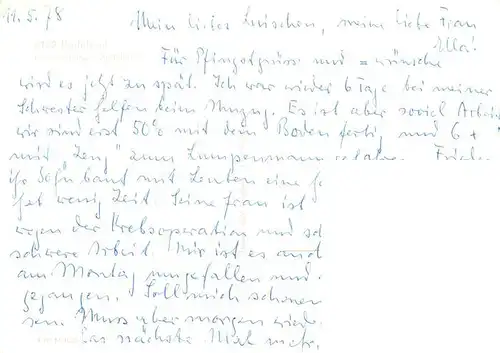 11.5.78
Mein liebes Luischen, meine liebe Frau
Ella!
Für Pfingstgrüsse und =wünsche
wird es jetzt zu spät. Ich war wieder 6 Tage bei meiner
Schwester helfen beim Umzug. Es ist aber soviel Arbeit
wir sind erst 50% mit dem Boden fertig und 6 x
mit "Zeug" zum Lumpenmann
ihr Sohn baut mit Leuten eine
hat wenig Zeit. Seine Frau ist
wegen der Krebsoperation und
schwere Arbeit. Mir ist es auch
am Montag umgefallen und
gegangen. Soll mich schonen
sen. Muss aber morgen wieder
Das nächste Mal mehr.